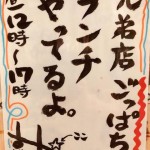 兄弟店ごっぱち
ランチ
やってるよ。
12時〜17時